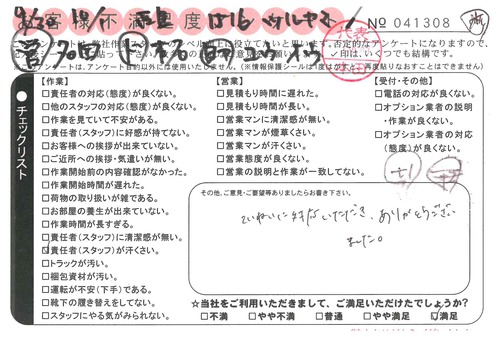 お客様不満足度
No 041308
チェックリスト
【作業】
□責任者の対応(態度)が良くない。
□他のスタッフの対応(態度)が良くない。
□作業を見ていて不安がある。
□責任者(スタッフ)に好感が持てない。
□お客様への挨拶が出来ていない。
□ご近所への挨拶・気遣いが無い。
□作業開始前の内容確認がなかった。
□作業開始時間が遅れた。
□荷物の取り扱いが雑である。
□お部屋の養生が出来ていない。
□作業時間が長すぎる。
□責任者(スタッフ)に清潔感が無い。
□責任者(スタッフ)が汗くさい。
□トラックが汚い。
□梱包資材が汚い。
□運転が不安(下手)である。
□靴下の履き替えをしてない。
□スタッフにやる気がみられない。
【営業】
□見積もり時間に遅れた。
□見積もり時間が長い。
□営業マンに清潔感が無い。
□営業マンが煙草くさい。
□営業マンが汗くさい。
□営業態度が良くない。
□営業の説明と作業が一致してない。
【受付・その他】
□電話の対応が良くない。
□オプション業者の説明
・作業が良くない。
□オプション業者の対応
(態度)が良くない。
その他、ご意見・ご要望等ありましたらお書き下さい。
ていねいに対応いただき、ありがとうござい
ました。
☆当社をご利用いただきまして、ご満足いただけたでしょうか?
□不満 □やや不満 □普通 □やや満足 ☑満足